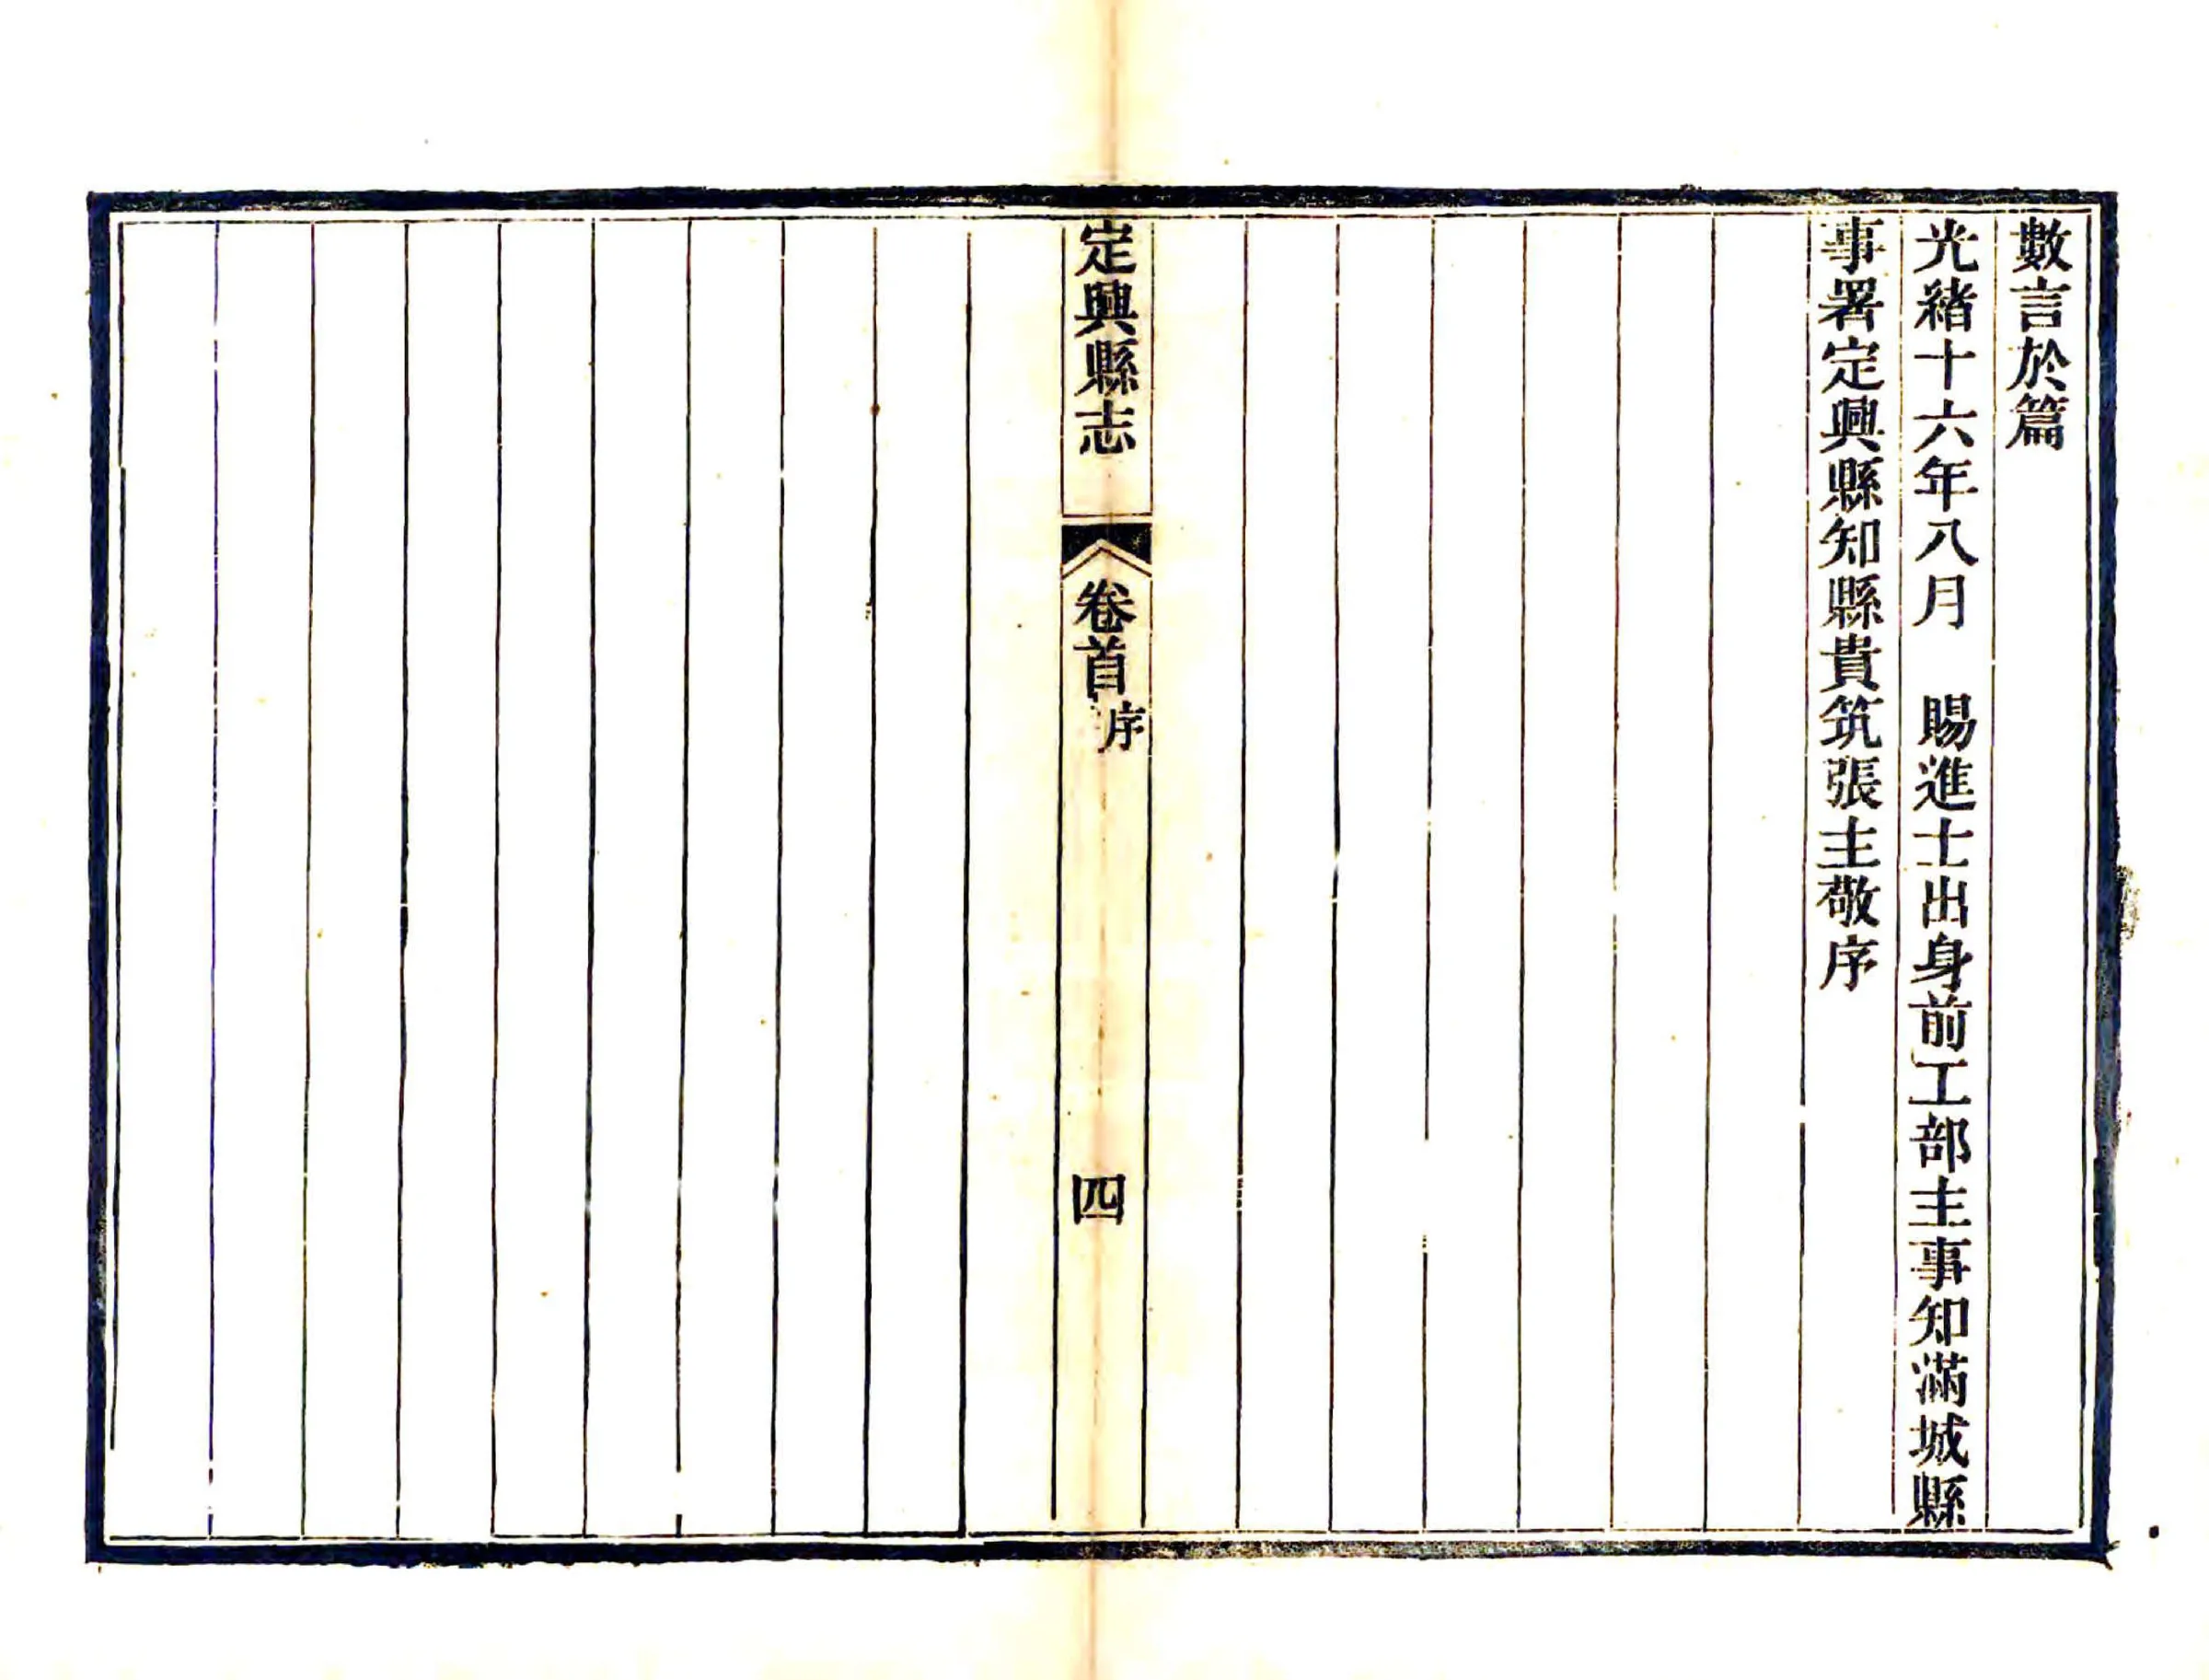 數言於篇
光緒十六年八月　賜進士出身前工部主事知滿城縣
事署定興縣知縣貴筑張主敬序
定興縣志
卷首
序
四